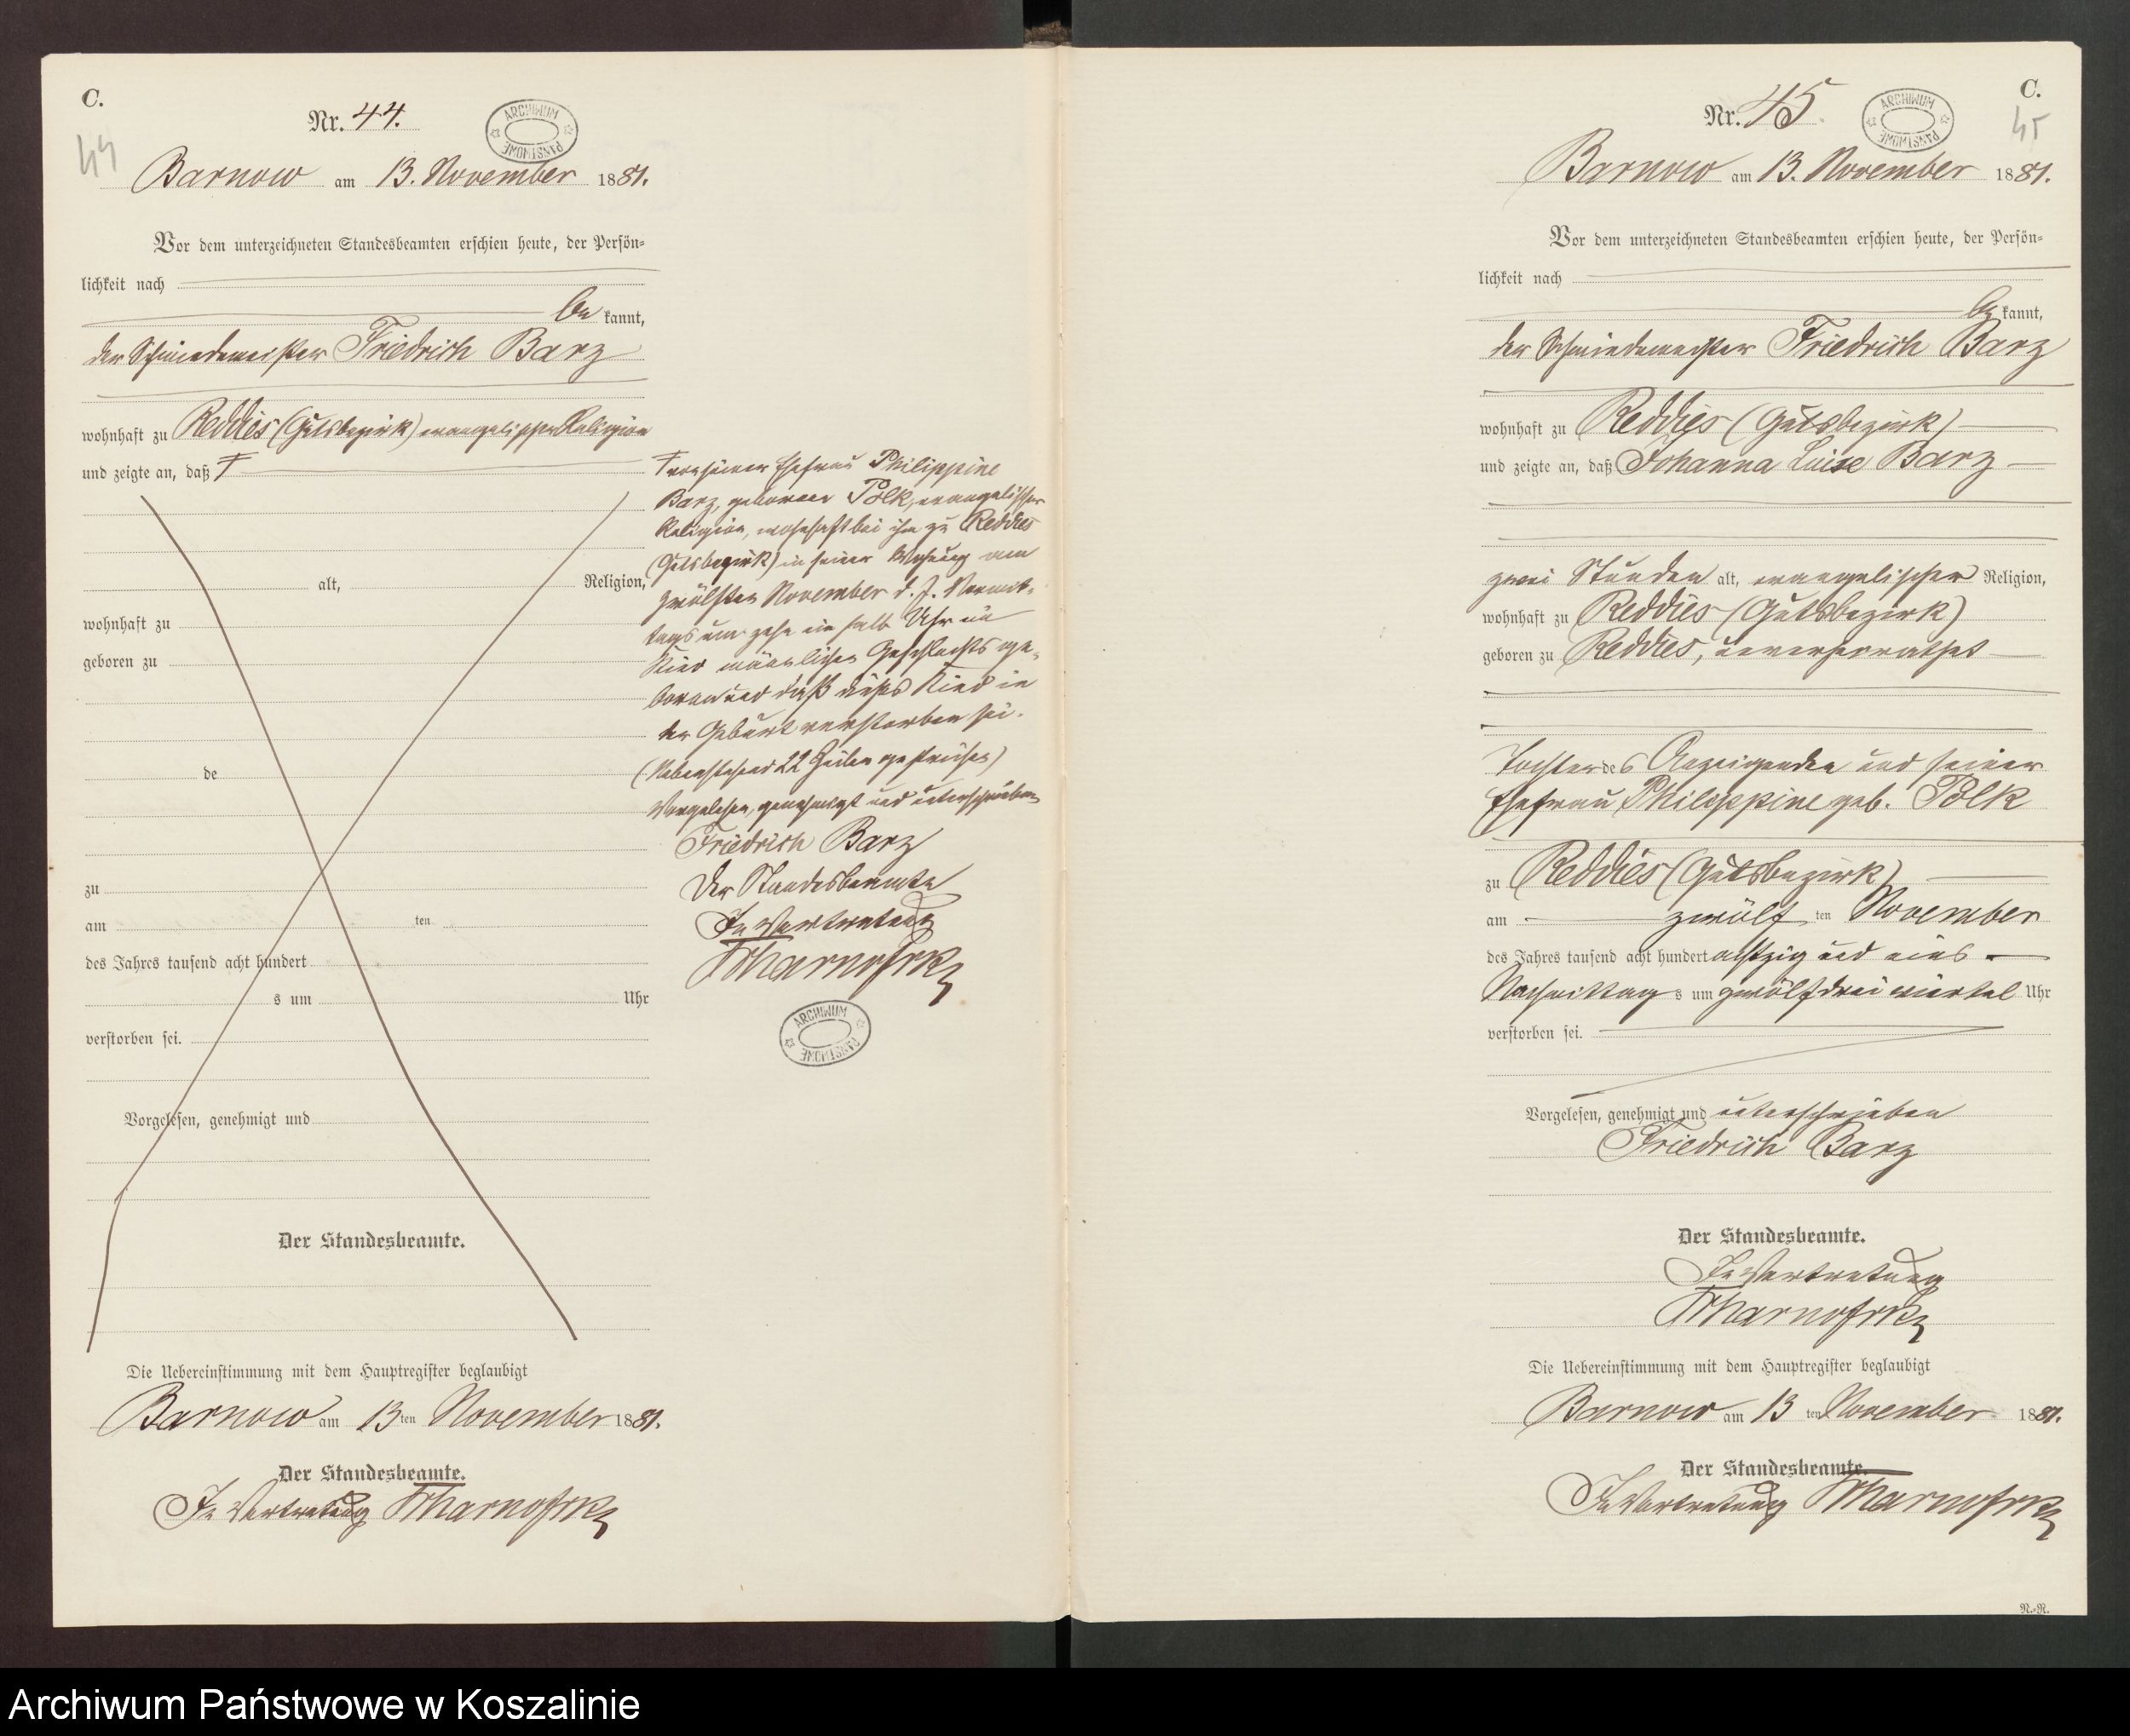 C.
Nr. 44.
ARCHIWUM PAŃSTWOWE
44
Barnow am 13. November 1881.
Vor dem unterzeichneten Standesbeamten erschien heute, der Persön-
lichkeit nach
be kannt,
der Schmiedemeister Friedrich Barz
wohnhaft zu Reddies (Gutsbezirk) evangelischer Religion
und zeigte an, daß
alt, Religion,
wohnhaft zu
geboren zu
de
zu
am ten
des Jahres tausend acht hundert
s um Uhr
verstorben sei.
Vorgelesen, genehmigt und
Der Standesbeamte.
von seiner Ehefrau Philippine
Barz, geborene Polk, evangelischer
Religion, wohnhaft bei ihm zu Reddies
(Gutsbezirk) in seiner Wohnung am
zwölften November d. J. Vormit-
tags um zehn ein halb Uhr ein
Kind männlichen Geschlechts ge-
boren und daß dieses Kind in
der Geburt verstorben sei.
(Nebenstehend 22 Zeilen gestrichen)
Vorgelesen, genehmigt und unterschrieben
Friedrich Barz
Der Standesbeamte
In Vertretung
ARCHIWUM PAŃSTWOWE
Die Uebereinstimmung mit dem Hauptregister beglaubigt
Barnow am 13 ten November 1881.
Der Standesbeamte.
In Vertretung
C.
Nr. 45.
ARCHIWUM PAŃSTWOWE
45
Barnow am 13. November 1881.
Vor dem unterzeichneten Standesbeamten erschien heute, der Persön-
lichkeit nach
be kannt,
der Schmiedemeister Friedrich Barz
wohnhaft zu Reddies (Gutsbezirk)
und zeigte an, daß Johanna Luise Barz
zwei Stunden alt, evangelischer Religion,
wohnhaft zu Reddies (Gutsbezirk)
geboren zu Reddies, unverheirathet
Tochter des Anzeigenden und seiner
Ehefrau Philippine geb. Polk
zu Reddies (Gutsbezirk)
am zwölf ten November
des Jahres tausend acht hundert achtzig und eins
Nachmittag s um zwölf drei viertel Uhr
verstorben sei.
Vorgelesen, genehmigt und unterschrieben
Friedrich Barz
Der Standesbeamte.
In Vertretung
Die Uebereinstimmung mit dem Hauptregister beglaubigt
Barnow am 13 ten November 1881.
Der Standesbeamte.
In Vertretung
N.-N.
Archiwum Państwowe w Koszalinie